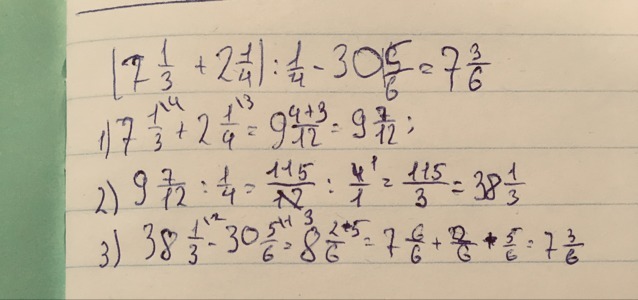 (7 1/3 + 2 1/4) : 1/4 - 30 5/6 = 7 3/6
1) 7 1/3 \4 + 2 1/4 \3 = 9 4+3/12 = 9 7/12 ;
2) 9 7/12 : 1/4 = 115/12 : 4/1 = 115/3 = 38 1/3
3) 38 1/3 \2 - 30 5/6 \1 = 8 2-5/6 = 7 6/6 + 2/6 - 5/6 = 7 3/6